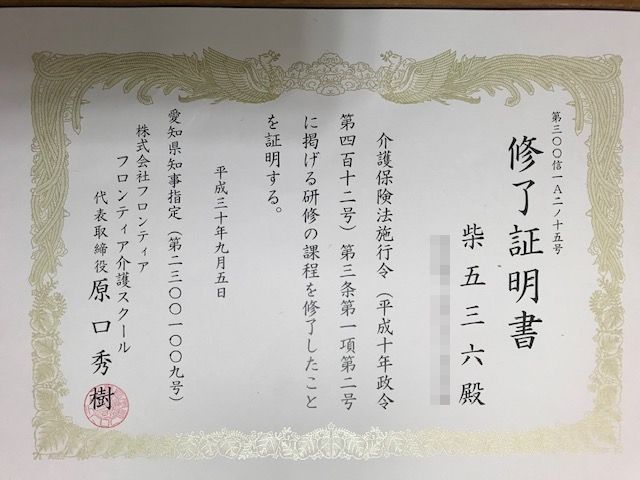 第三〇〇信一A二ノ十五号
修了証明書
柴五三六殿
介護保険法施行令（平成十年政令
第四百十二号）第三条第一項第二号
に掲げる研修の課程を修了したこと
を証明する。
平成三十年九月五日
愛知県知事指定（第二三〇〇一〇〇九号）
株式会社フロンティア
フロンティア介護スクール
代表取締役 原口秀樹